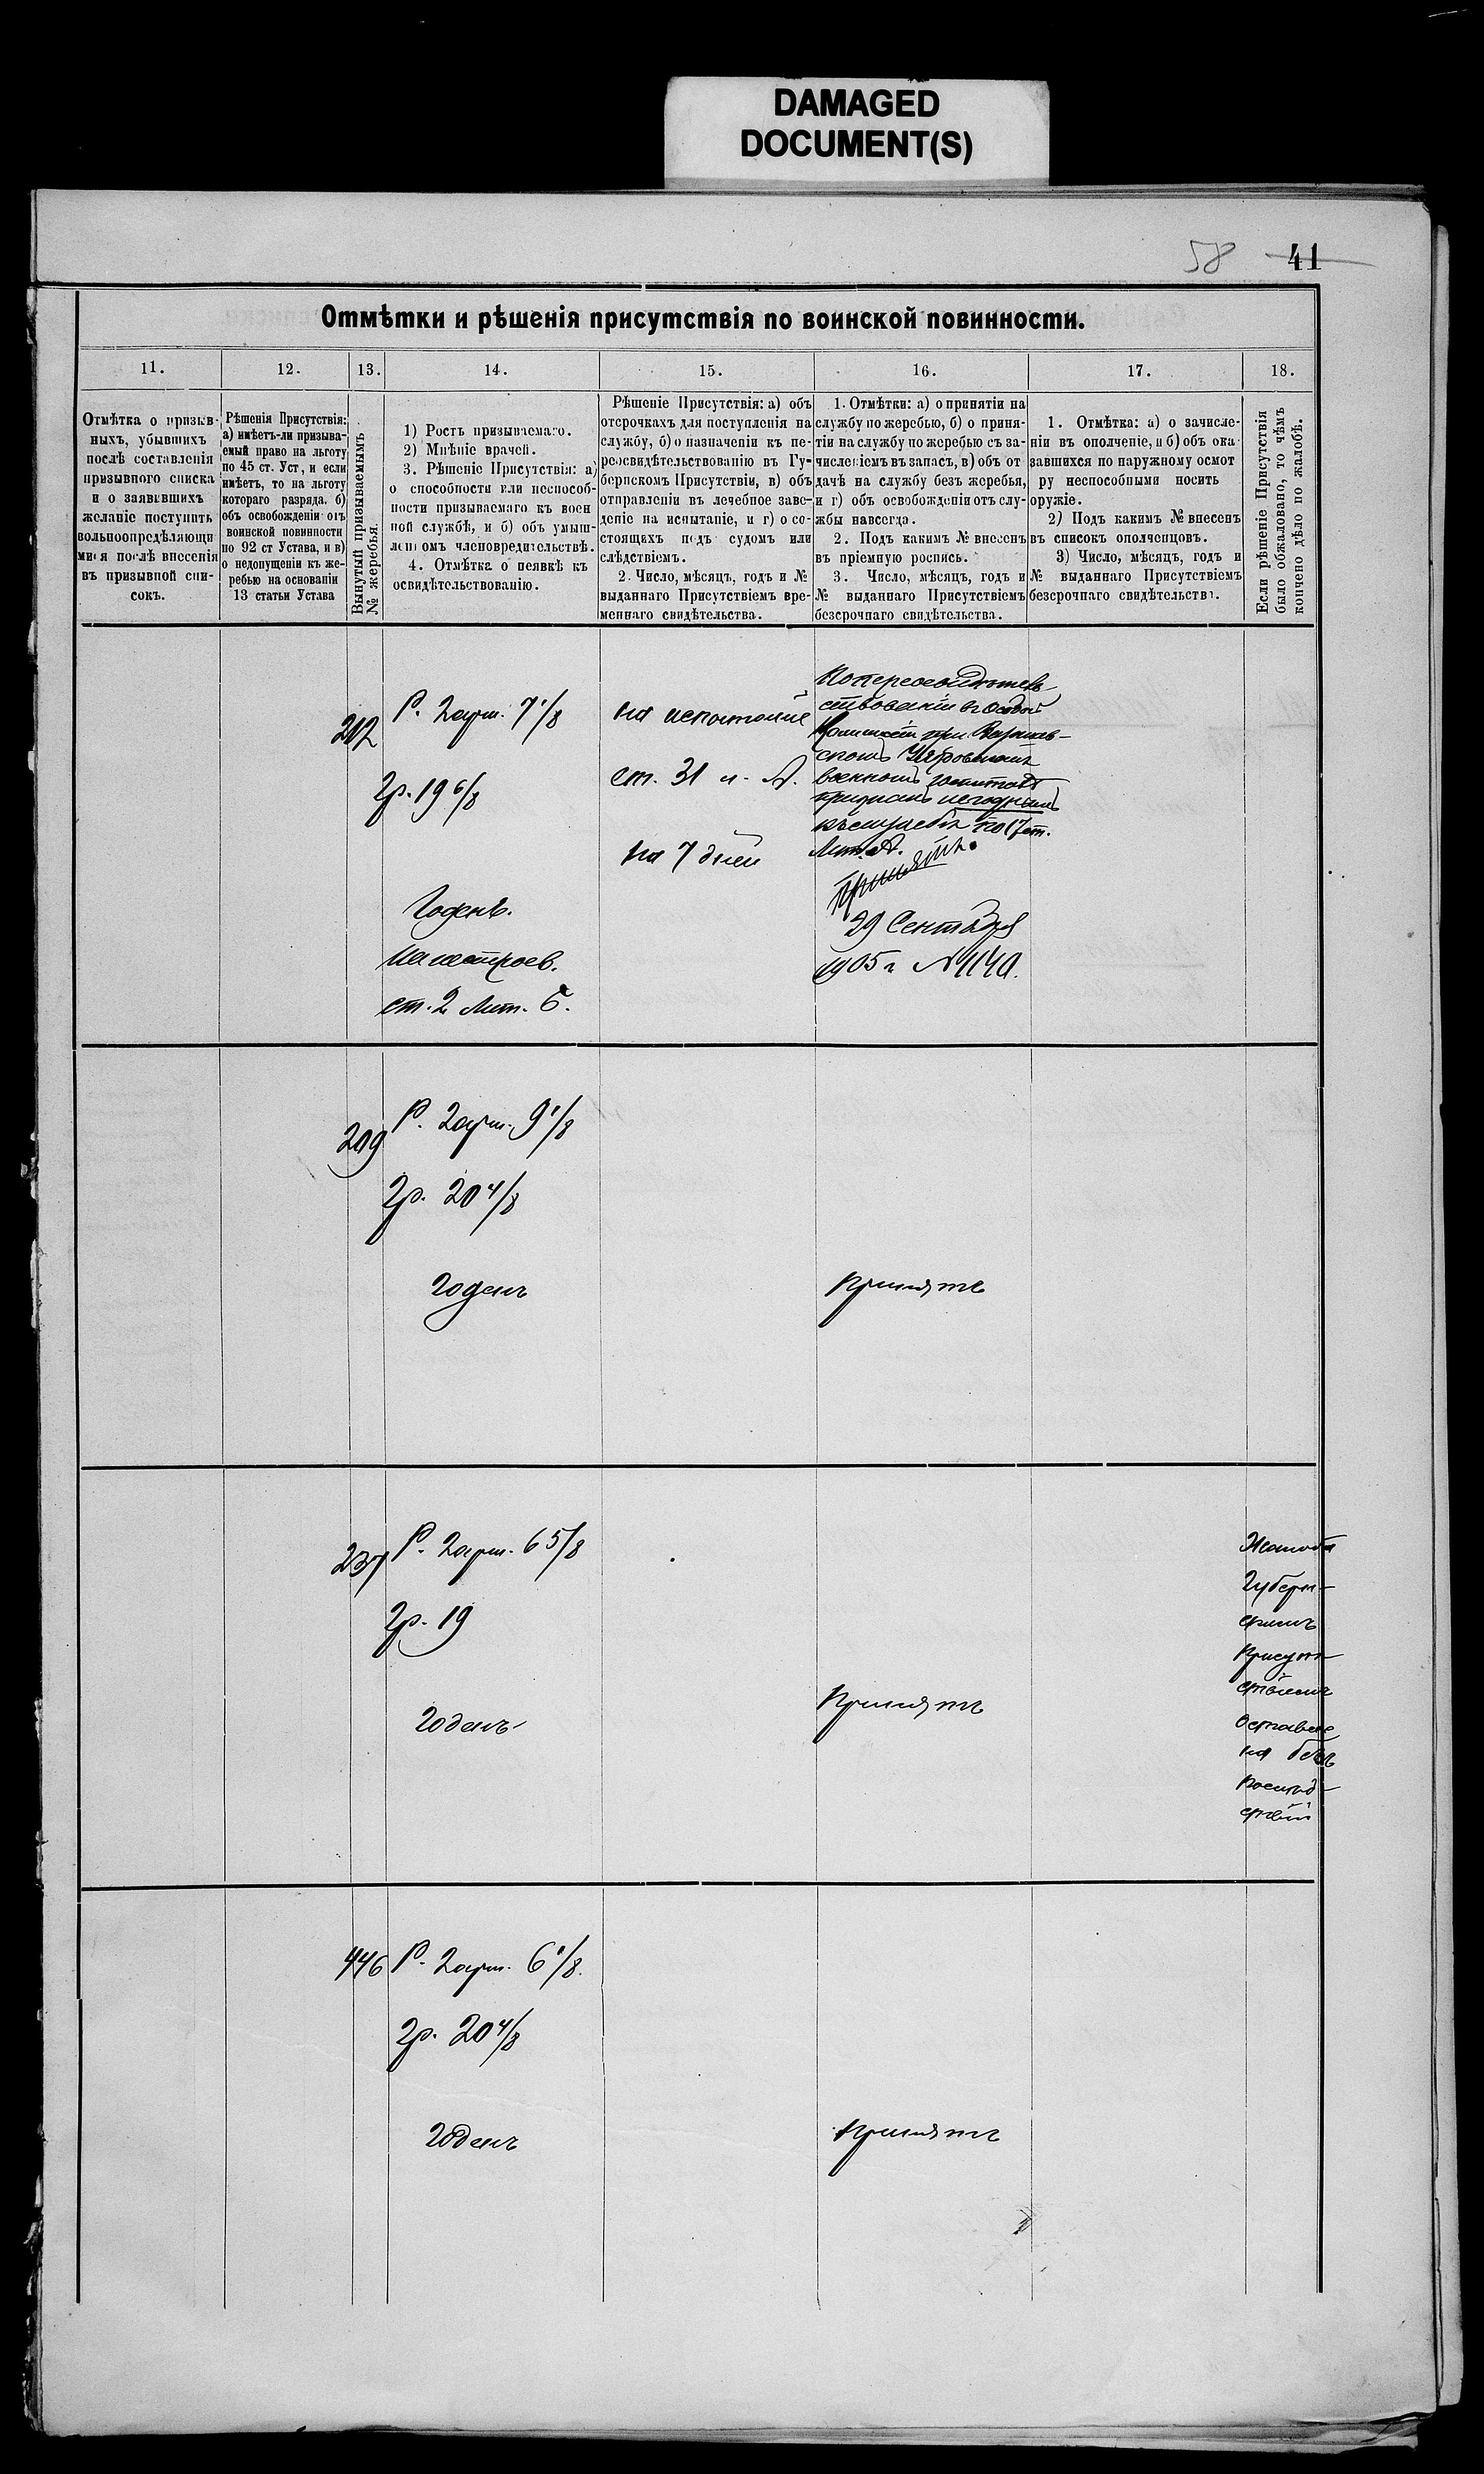 DAMAGED
DOCUMENT(S)
58 41
Отмѣтки и рѣшенія присутствія по воинской повинности.
11. 12. 13. 14. 15. 16. 17. 18.
Отмѣтка о призыв-
ныхъ, убывшихъ
послѣ составленія
призывного списка
и о заявившихъ
желаніе поступить
вольноопредѣляющи
мися послѣ внесенія
въ призывной спи-
сокъ.
Рѣшенія Присутствія:
а) имѣетъ-ли призыва-
емый право на льготу
по 45 ст. Уст, и если
имѣетъ, то на льготу
котораго разряда. б)
объ освобожденіи отъ
воинской повинности
по 92 ст Устава, и в)
о недопущеніи къ же-
ребью на основаніи
13 статьи Устава
Вынутый призываемымъ
№ жеребья.
1) Ростъ призываемаго.
2) Мнѣніе врачей.
3. Рѣшеніе Присутствія: а)
о способности или неспособ-
ности призываемаго къ воен
ной службѣ, и б) объ умыш-
ленномъ членовредительствѣ.
4. Отмѣтка о неявкѣ къ
освидѣтельствованію.
Рѣшеніе Присутствія: а) объ
отсрочкахъ для поступленія на
службу, б) о назначеніи къ пе-
реосвидѣтельствованію въ Гу-
бернскомъ Присутствіи, в) объ
отправленіи въ лечебное заве-
деніе на испытаніе, и г) о со-
стоящихъ подъ судомъ или
слѣдствіемъ.
2. Число, мѣсяцъ, годъ и №
выданнаго Присутствіемъ вре-
меннаго свидѣтельства.
1. Отмѣтки: а) о принятіи на
службу по жеребью, б) о приня-
тіи на службу по жеребью съ за-
численіемъ въ запасъ, в) объ от
дачѣ на службу безъ жеребья,
и г) объ освобожденіи отъ слу-
жбы навсегда.
2. Подъ какимъ № внесенъ
въ пріемную роспись.
3. Число, мѣсяцъ, годъ и
№ выданнаго Присутствіемъ
безсрочнаго свидѣтельства.
1. Отмѣтка: а) о зачисле-
ніи въ ополченіе, и б) объ ока
завшихся по наружному осмот
ру неспособными носить
оружіе.
2) Подъ какимъ № внесенъ
въ списокъ ополченцовъ.
3) Число, мѣсяцъ, годъ и
№ выданнаго Присутствіемъ
безсрочнаго свидѣтельства.
Если рѣшеніе Присутствія
было обжаловано, то чѣмъ
кончено дѣло по жалобѣ.
212
Р. 2 арш. 7 1/8
гр. 19 6/8
Годенъ.
нестроев.
ст. 2 Лит. Б.
на испытаніе
ст. 31 л. А.
на 7 дней
По переосвидѣтель-
ствованіи въ Особой
Комиссіи при Варшав-
скомъ Уяздовскомъ
военномъ госпиталѣ
признанъ негоднымъ
къ службѣ по 17 ст.
Лит. А.
Принятъ.
29 Сентября
1905 г. № 1140.
209
Р. 2 арш. 9 1/8
гр. 20 4/8
годенъ
принятъ
237
Р. 2 арш. 6 5/8
гр. 19
годенъ
принятъ
Жалоба
Губерн-
скимъ
Присут-
ствіемъ
оставле
на безъ
послѣд-
ствій
446
Р. 2 арш. 6 1/8.
гр. 20 4/8
годенъ
принятъ